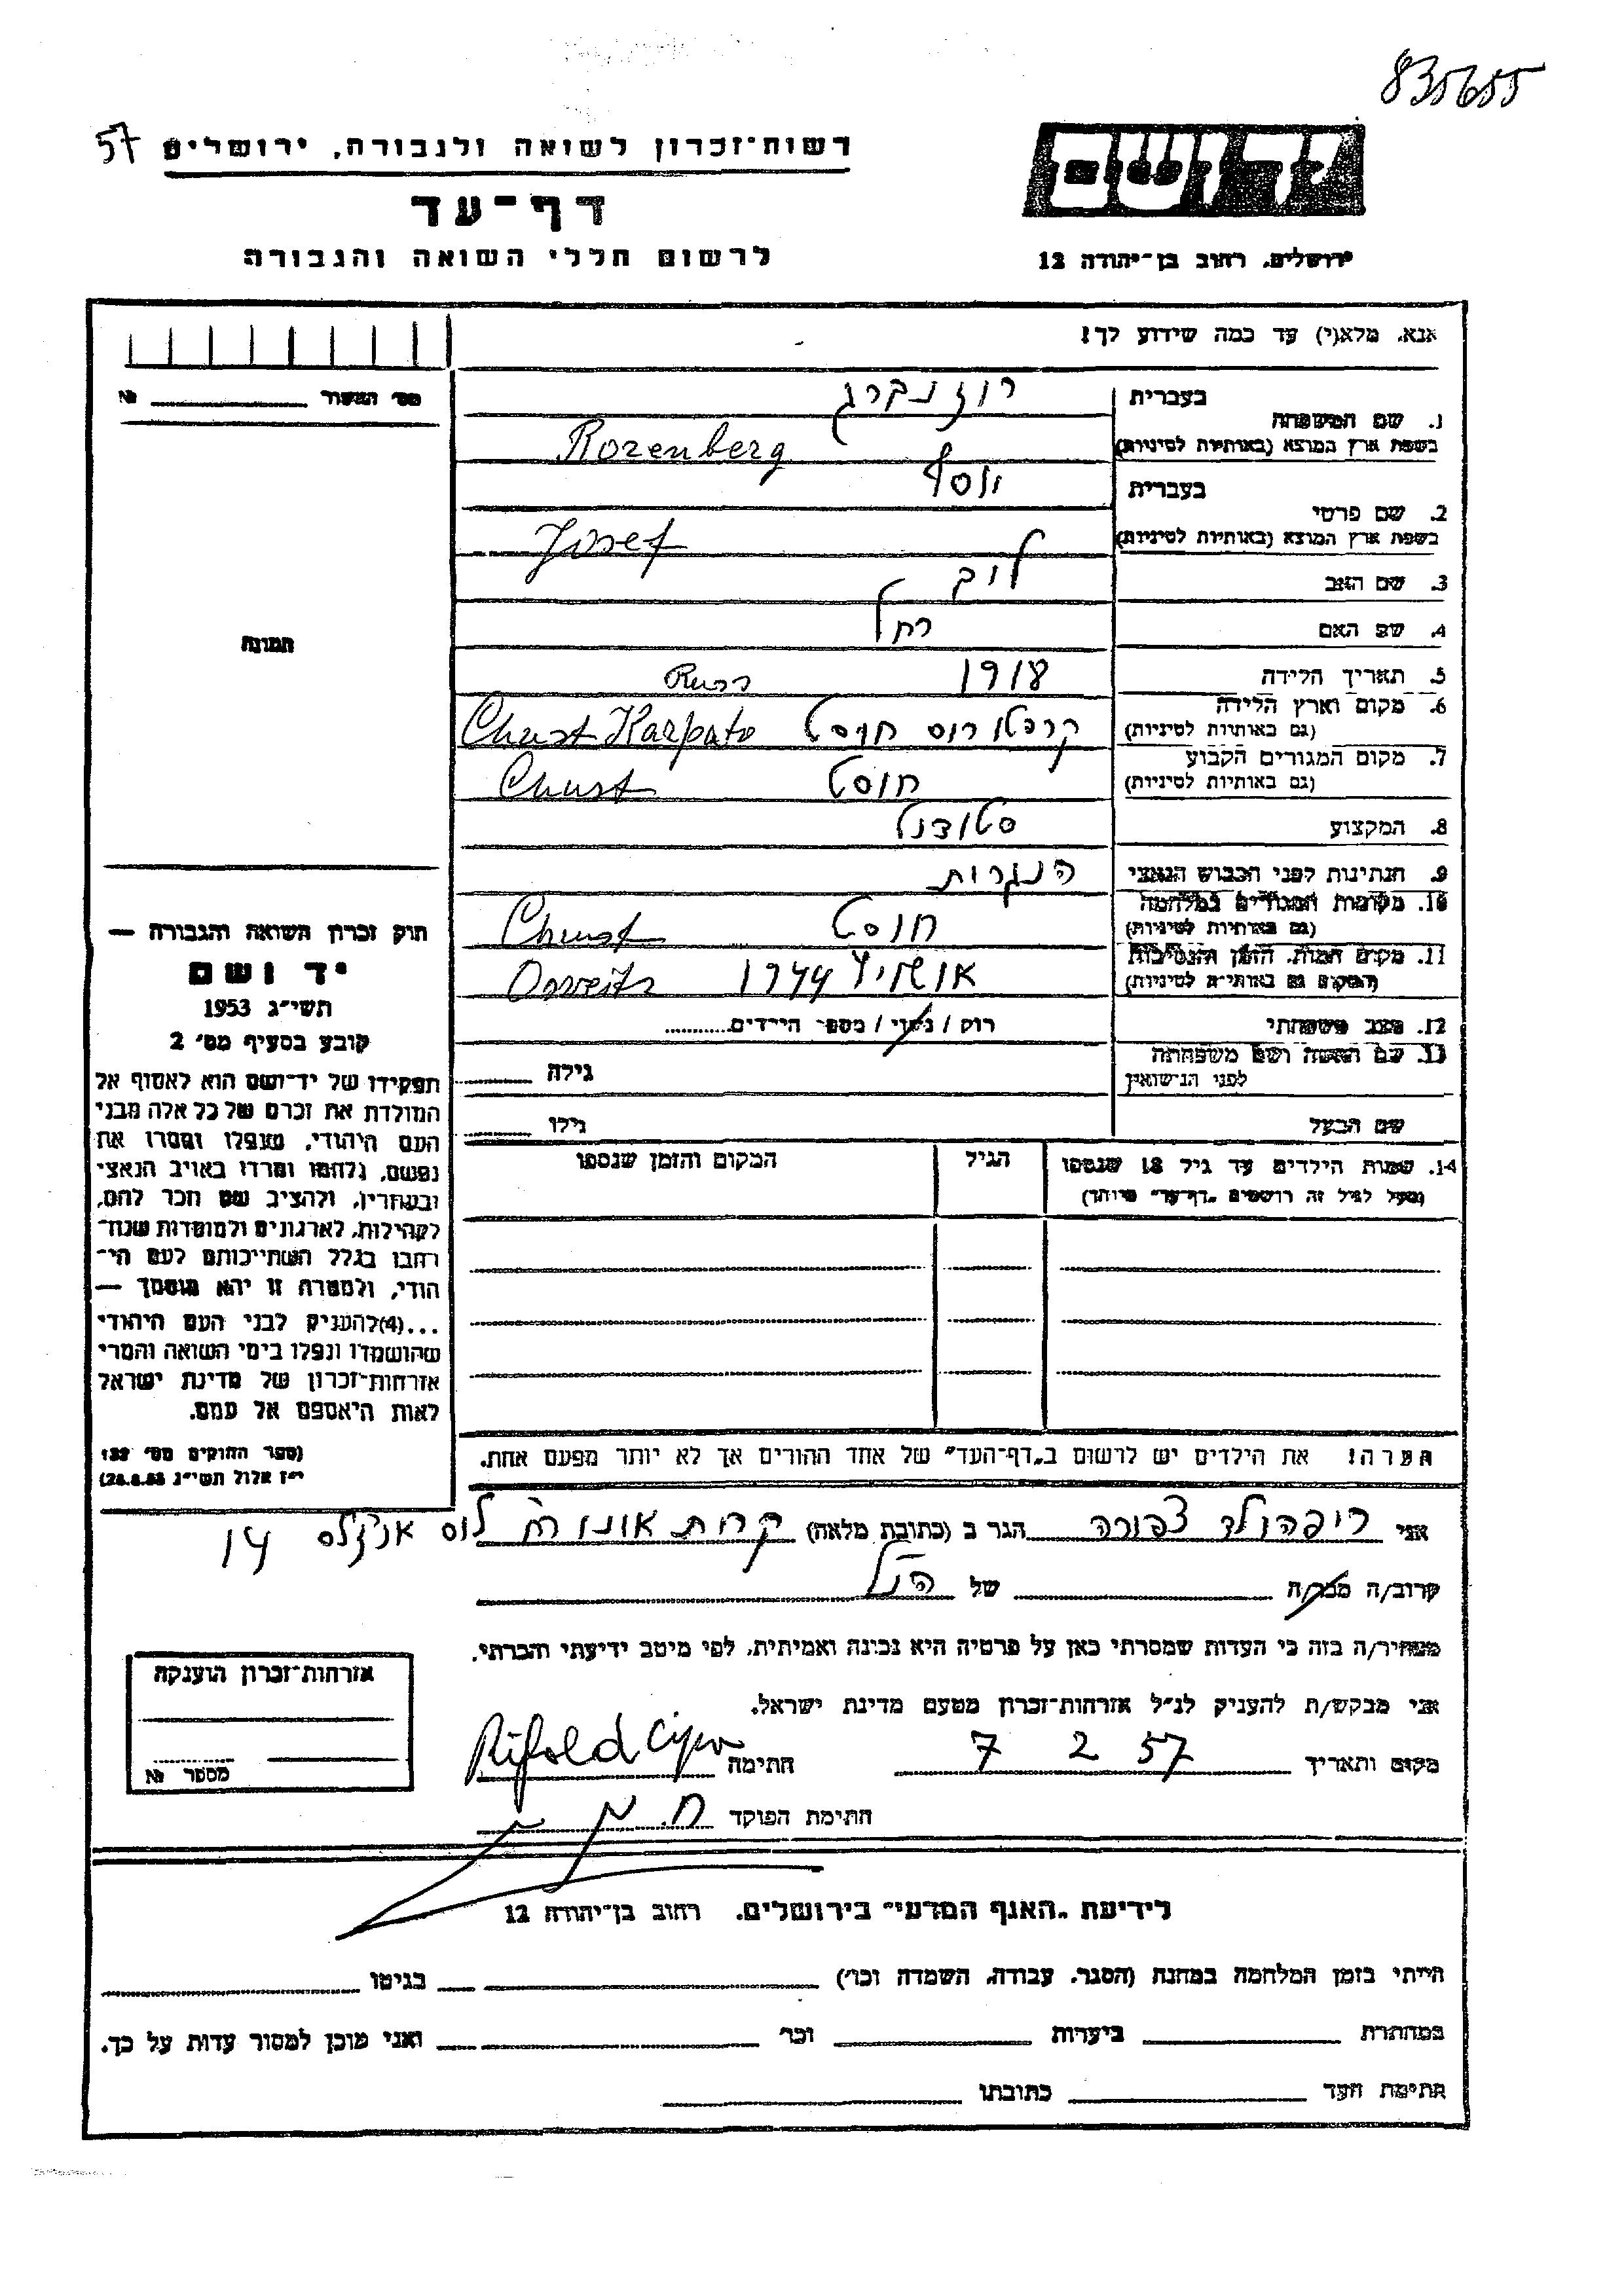 835655
57
רשות־זכרון לשואה ולגבורה, ירושלים
יד ושם
דף־עד
לרשום חללי השואה והגבורה
ירושלים, רחוב בן־יהודה 12
אנא, מלא(י) עד כמה שידוע לך!
מס' המשור №
בעברית רוזנברג
1. שם המשפחה
בשפת ארץ המוצא (באותיות לטיניות) Rozenberg
בעברית יוסף
2. שם פרטי
בשפת ארץ המוצא (באותיות לטיניות) Josef
3. שם האב לוב
4. שם האם רחל
5. תאריך הלידה 1918
6. מקום וארץ הלידה קרפטו רוס חוסט Chust Karpato Russ
(גם באותיות לטיניות)
7. מקום המגורים הקבוע חוסט Chust
(גם באותיות לטיניות)
8. המקצוע סטודנט
9. הנתינות לפני הכבוש הנאצי הונגרית
10. מקומות המגורים במלחמה חוסט Chust
(גם באותיות לטיניות)
11. מקום המות, הזמן והנסיבות אושויץ 1944
(המקום גם באותיות לטיניות)
12. מצב משפחתי רוק / נשוי / מספר הילדים
13. שם האשה ושם משפחתה
לפני הנישואין גילה
שם הבעל גילו
14. שמות הילדים עד גיל 18 שנספו הגיל המקום והזמן שנספו
(מעל לגיל זה רושמים "דף־עד" מיוחד)
הערה! את הילדים יש לרשום ב"דף־העד" של אחד ההורים אך לא יותר מפעם אחת.
תמונה
חוק זכרון השואה והגבורה —
יד ושם
תשי"ג 1953
קובע בסעיף מס' 2
תפקידו של יד־ושם הוא לאסוף אל
המולדת את זכרם של כל אלה מבני
העם היהודי, שנפלו ומסרו את
נפשם, נלחמו ומרדו באויב הנאצי
ובעוזריו, ולהציב שם וזכר להם,
לקהילות, לארגונים ולמוסדות שנח־
רבו בגלל השתייכותם לעם הי־
הודי, ולמטרה זו יהא מוסמך —
...(4)להעניק לבני העם היהודי
שהושמדו ונפלו בימי השואה והמרי
אזרחות־זכרון של מדינת ישראל
לאות היאספם אל עמם.
(ספר החוקים מס' 132
י"ז אלול תשי"ג 28.8.53)
אני ריפהולד צפורה הגר ב (כתובת מלאה) קרית אונו רח' לוס אנג'לס 14
קרוב/ה מכר/ה של הנ"ל
מצהיר/ה בזה כי העדות שמסרתי כאן על פרטיה היא נכונה ואמיתית, לפי מיטב ידיעתי והכרתי.
אני מבקש/ת להעניק לנ"ל אזרחות־זכרון מטעם מדינת ישראל.
מקום ותאריך 7 2 57 חתימה
חתימת הפוקד
אזרחות־זכרון הוענקה
מספר №
לידיעת "האגף המדעי" בירושלים, רחוב בן־יהודה 12
הייתי בזמן המלחמה במחנה (הסגר, עבודה, השמדה וכו') בגיטו
במחתרת ביערות וכו' ואני מוכן למסור עדות על כך.
חתימת העד כתובתו